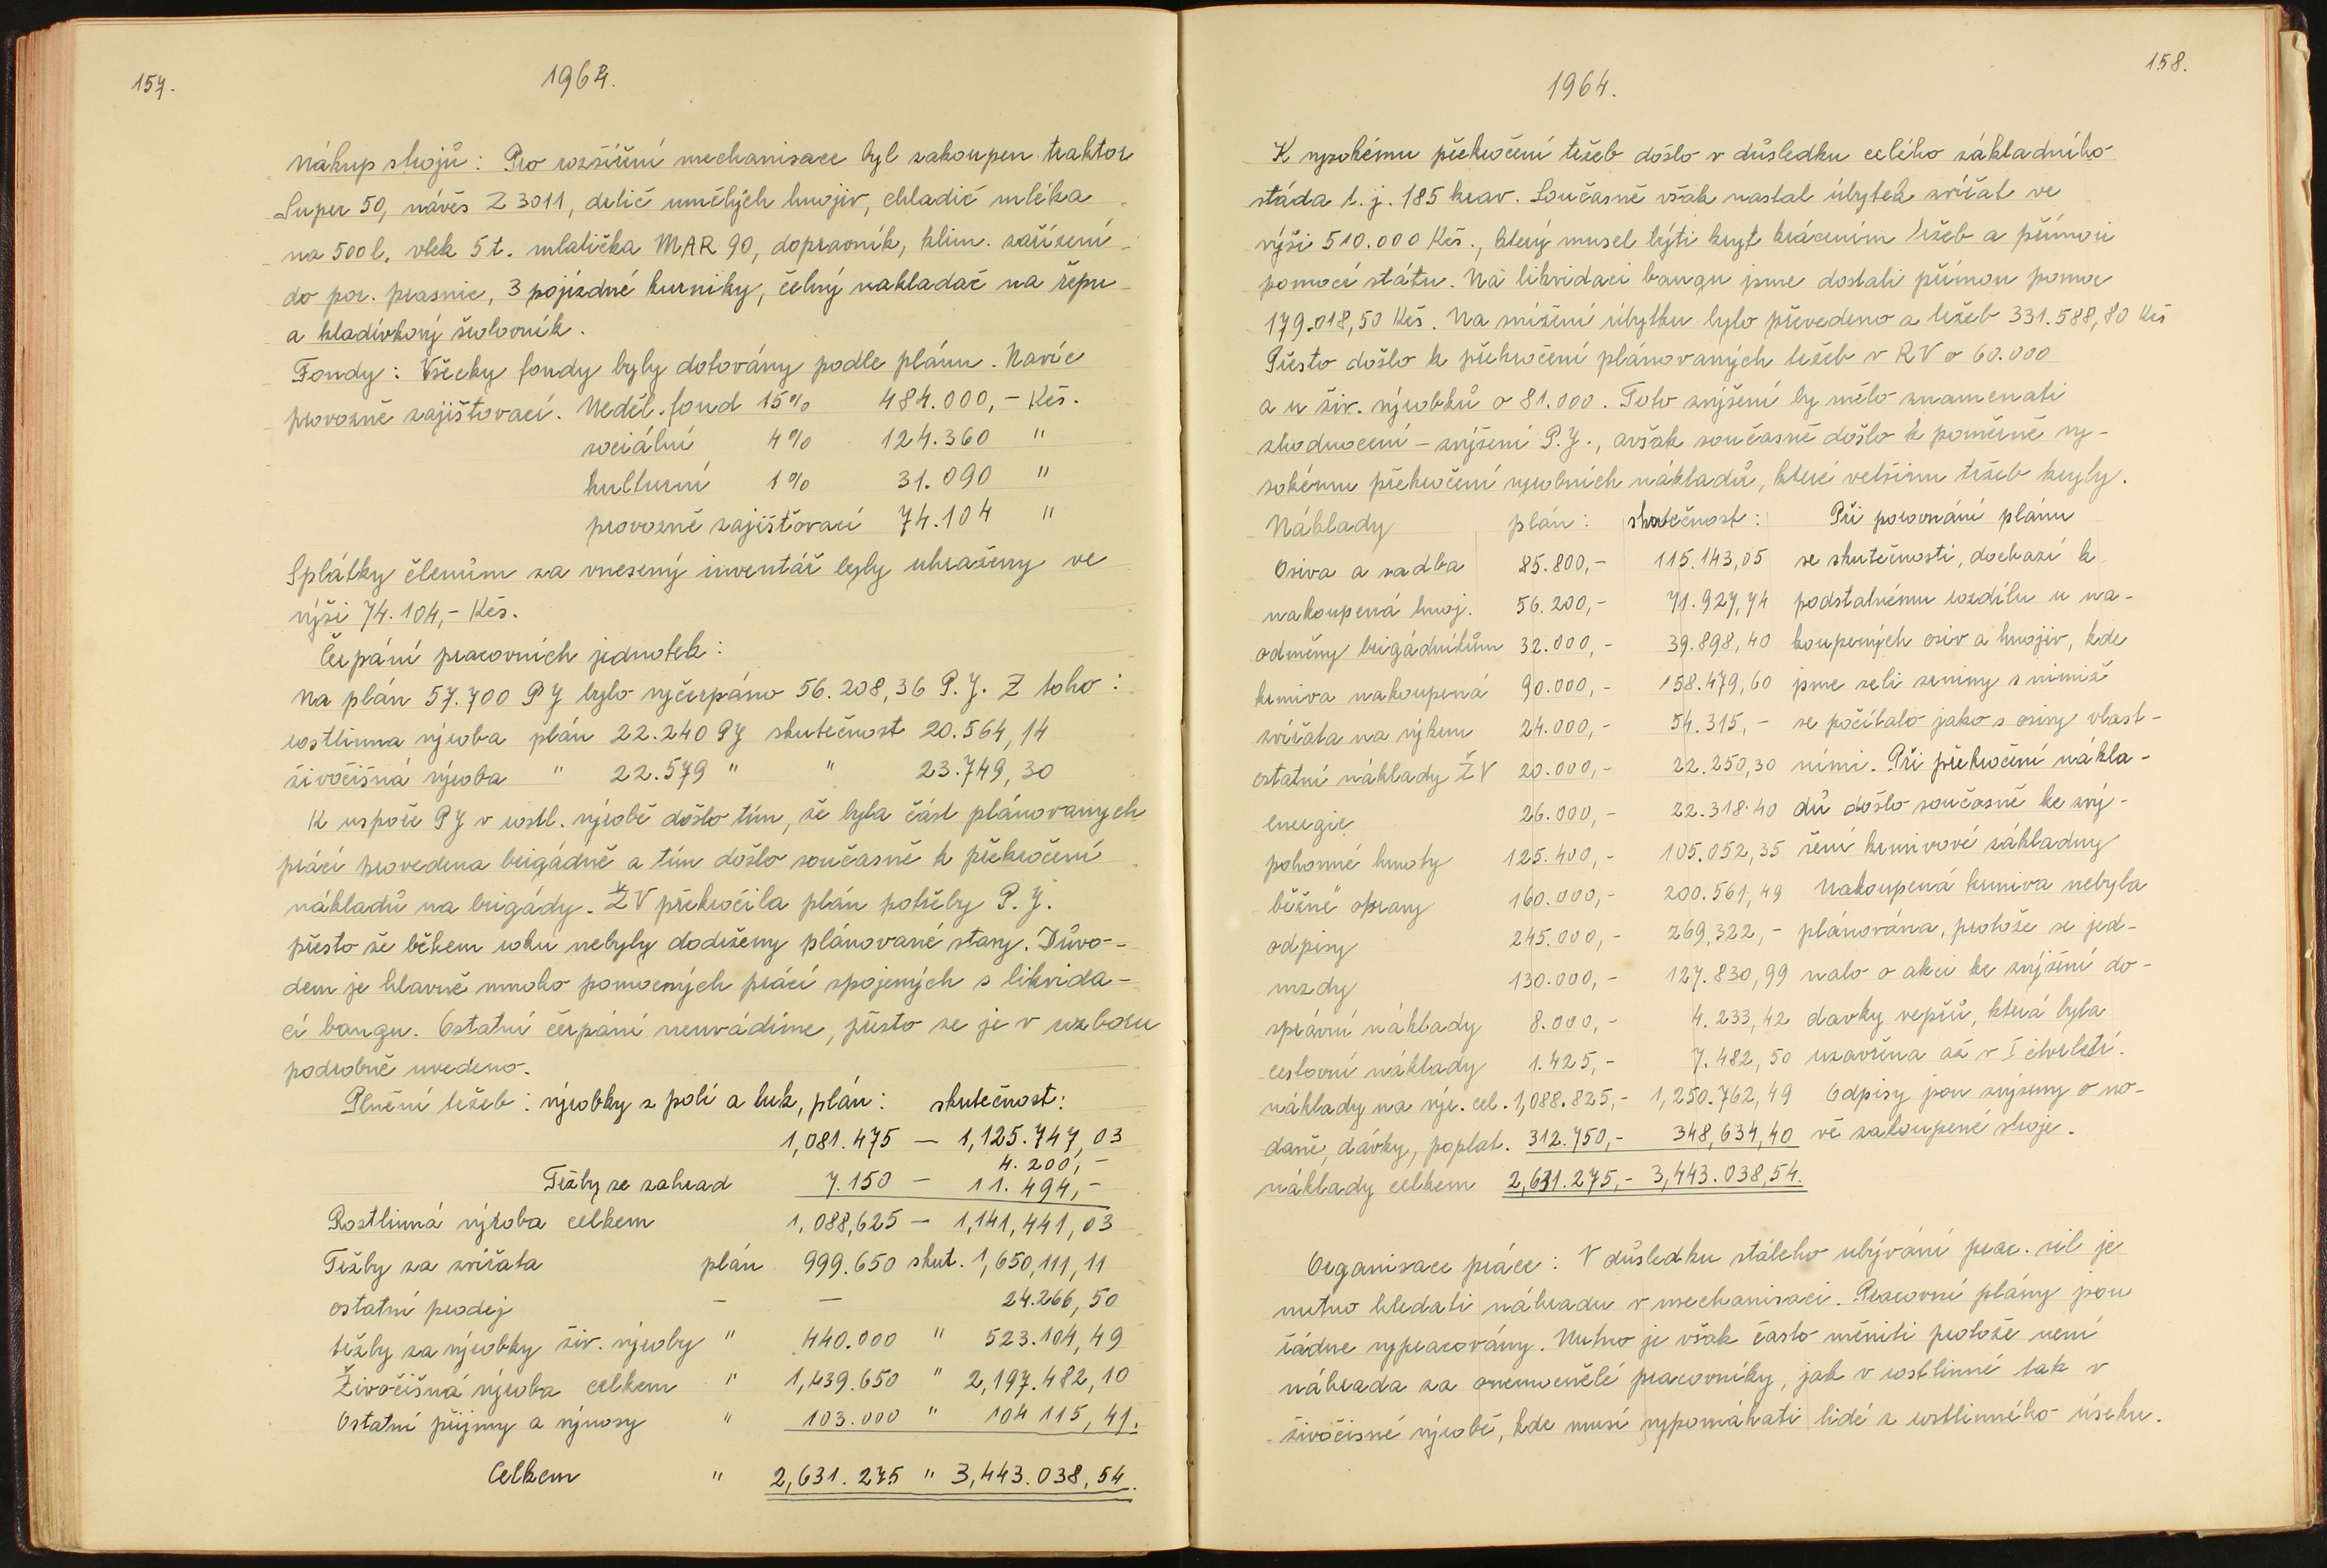 157.
1964.
Nákup strojů: Pro rozšíření mechanisace byl zakoupen traktor
Super 50, návěs Z 3011, delič umělých hnojiv, chladič mléka
na 500 l, vlek 5 t. mlatička MAR 90, dopravník, klim. zařízení
do por. prasnic, 3 pojízdné kurníky, čelný nakladač na řepu
a kladívkový šrotovník.
Fondy: Všecky fondy byly dotovány podle plánu. Navíc
provozně zajišťovací. Neděl. fond 15% 484.000,- Kčs.
sociální 4% 124.360 "
kulturní 1% 31.090 "
provozně zajišťovací 74.104 "
Splátky členům za vnesený inventář byly uhraženy ve
výši 74.104,- Kčs.
Čerpání pracovních jednotek:
Na plán 57.700 PJ bylo vyčerpáno 56.208,36 P.J. Z toho:
rostlinna výroba plán 22.240 PJ skutečnost 20.564,14
živočišná výroba " 22.579 " " 23.749,30
K uspoře PJ v rostl. výrobě došlo tím, že byla část plánovaných
prácí provedena brigádně a tím došlo současně k překročení
nákladů na brigády. ŽV překročila plán potřeby P.J.
přesto že během roku nebyly dodrženy plánované stavy. Důvo-
dem je hlavně mnoho pomocných prácí spojených s likvida-
cí bangu. Ostatní čerpání neuvádíme, přesto se je v rozboru
podrobně uvedeno.
Plnění tržeb: výrobky z polí a luk, plán: skutečnost:
1,081.475 — 1,125.747,03
4.200,-
Tržby ze zahrad 7.150 — 11.494,-
Rostlinná výroba celkem 1,088,625 — 1,141,441,03
Tržby za zvířata plán 999.650 skut. 1,650,111,11
ostatní prodej — — 24.266,50
tržby za výrobky živ. výroby " 440.000 " 523.104,49
Živočišná výroba celkem " 1,439.650 " 2,197.482,10
Ostatní příjmy a výnosy " 103.000 " 104 115,41.
Celkem " 2,631.275 " 3,443.038,54.
158.
1964.
K vysokému překročení tržeb došlo v důsledku celého základního
stáda t.j. 185 krav. Současně však nastal úbytek zvířat ve
výši 510.000 Kčs., který musel býti kryt krácením tržeb a přímou
pomocí státu. Na likvidaci bangu jsme dostali přímou pomoc
179.018,50 Kčs. Na snížení úbytku bylo převedeno z tržeb 331.588,80 Kčs
Přesto došlo k překročení plánovaných tržeb v RV o 60.000
a u živ. výrobků o 81.000. Toto zvýšení by mělo znamenati
zhodnocení – zvýšení P.J., avšak současně došlo k poměrně vy-
sokému překročení výrobních nákladů, které velšinu tržeb kryly.
Náklady plán: skutečnost: Při porovnání plánu
Osiva a sadba 85.800,- 115.143,05 se skutečnosti, dochazí k
nakoupená hnoj. 56.200,- 71.927,74 podstatnému rozdílu u na-
odměny brigádníkům 32.000,- 39.898,40 koupených osiv a hnojiv, kde
krmiva nakoupená 90.000,- 158.479,60 jsme seli zeniny s nimiž
zvířata na výkrm 24.000,- 54.315,- se počítalo jako s osivy vlast-
ostatní náklady ŽV 20.000,- 22.250,30 ními. Při překročení nákla-
energie 26.000,- 22.318.40 dů došlo současně ke zvý-
pohonné hmoty 125.400,- 105.052,35 šení krmivové základny
běžné opravy 160.000,- 200.561,49 Nakoupená krmiva nebyla
odpisy 245.000,- 269,322,- plánována, protože se jed-
mzdy 130.000,- 127.830,99 nalo o akci ke zvýšení do-
správní náklady 8.000,- 4.233,42 davky vepřů, která byla
cestovní náklady 1.425,- 7.482,50 uzavřena až v I čtvrletí.
náklady na výr. cel. 1,088.825,- 1,250.762,49 Odpisy jsou zvýseny o no-
daně, dávky, poplat. 312.750,- 348,634,40 vě zakoupené stroje.
náklady celkem 2,631.275,- 3,443.038,54.
Organisace práce: V důsledku stáleho ubývání prac. sil je
nutno hledati náhradu v mechanisaci. Pracovní plány jsou
řádne vypracovány. Nutno je však často měniti protože není
náhrada za onemocnělé pracovníky, jak v rostlinné tak v
živočisné výrobě, kde musí vypomáhati lidé z rostlinného úseku.